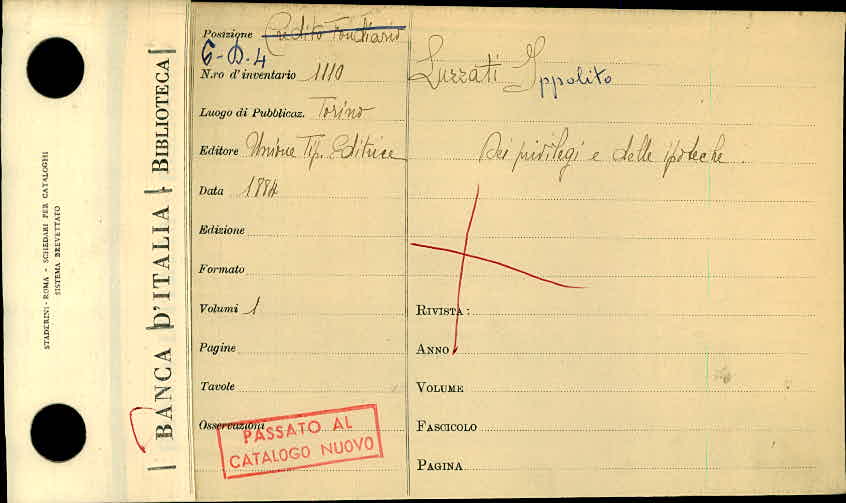 STADERINI - ROMA - SCHEDARI PER CATALOGHI
SISTEMA BREVETTATO
BANCA D'ITALIA - BIBLIOTECA
Posizione Credito Fondiario
6-D.4
N.ro d'inventario 1110
Luogo di Pubblicaz. Torino
Editore Unione Tip. Editrice
Data 1884
Edizione
Formato
Volumi 1
Pagine
Tavole
Osservazioni
PASSATO AL
CATALOGO NUOVO
Luzzati Ippolito
Dei privilegi e delle ipoteche
RIVISTA:
ANNO
VOLUME
FASCICOLO
PAGINA